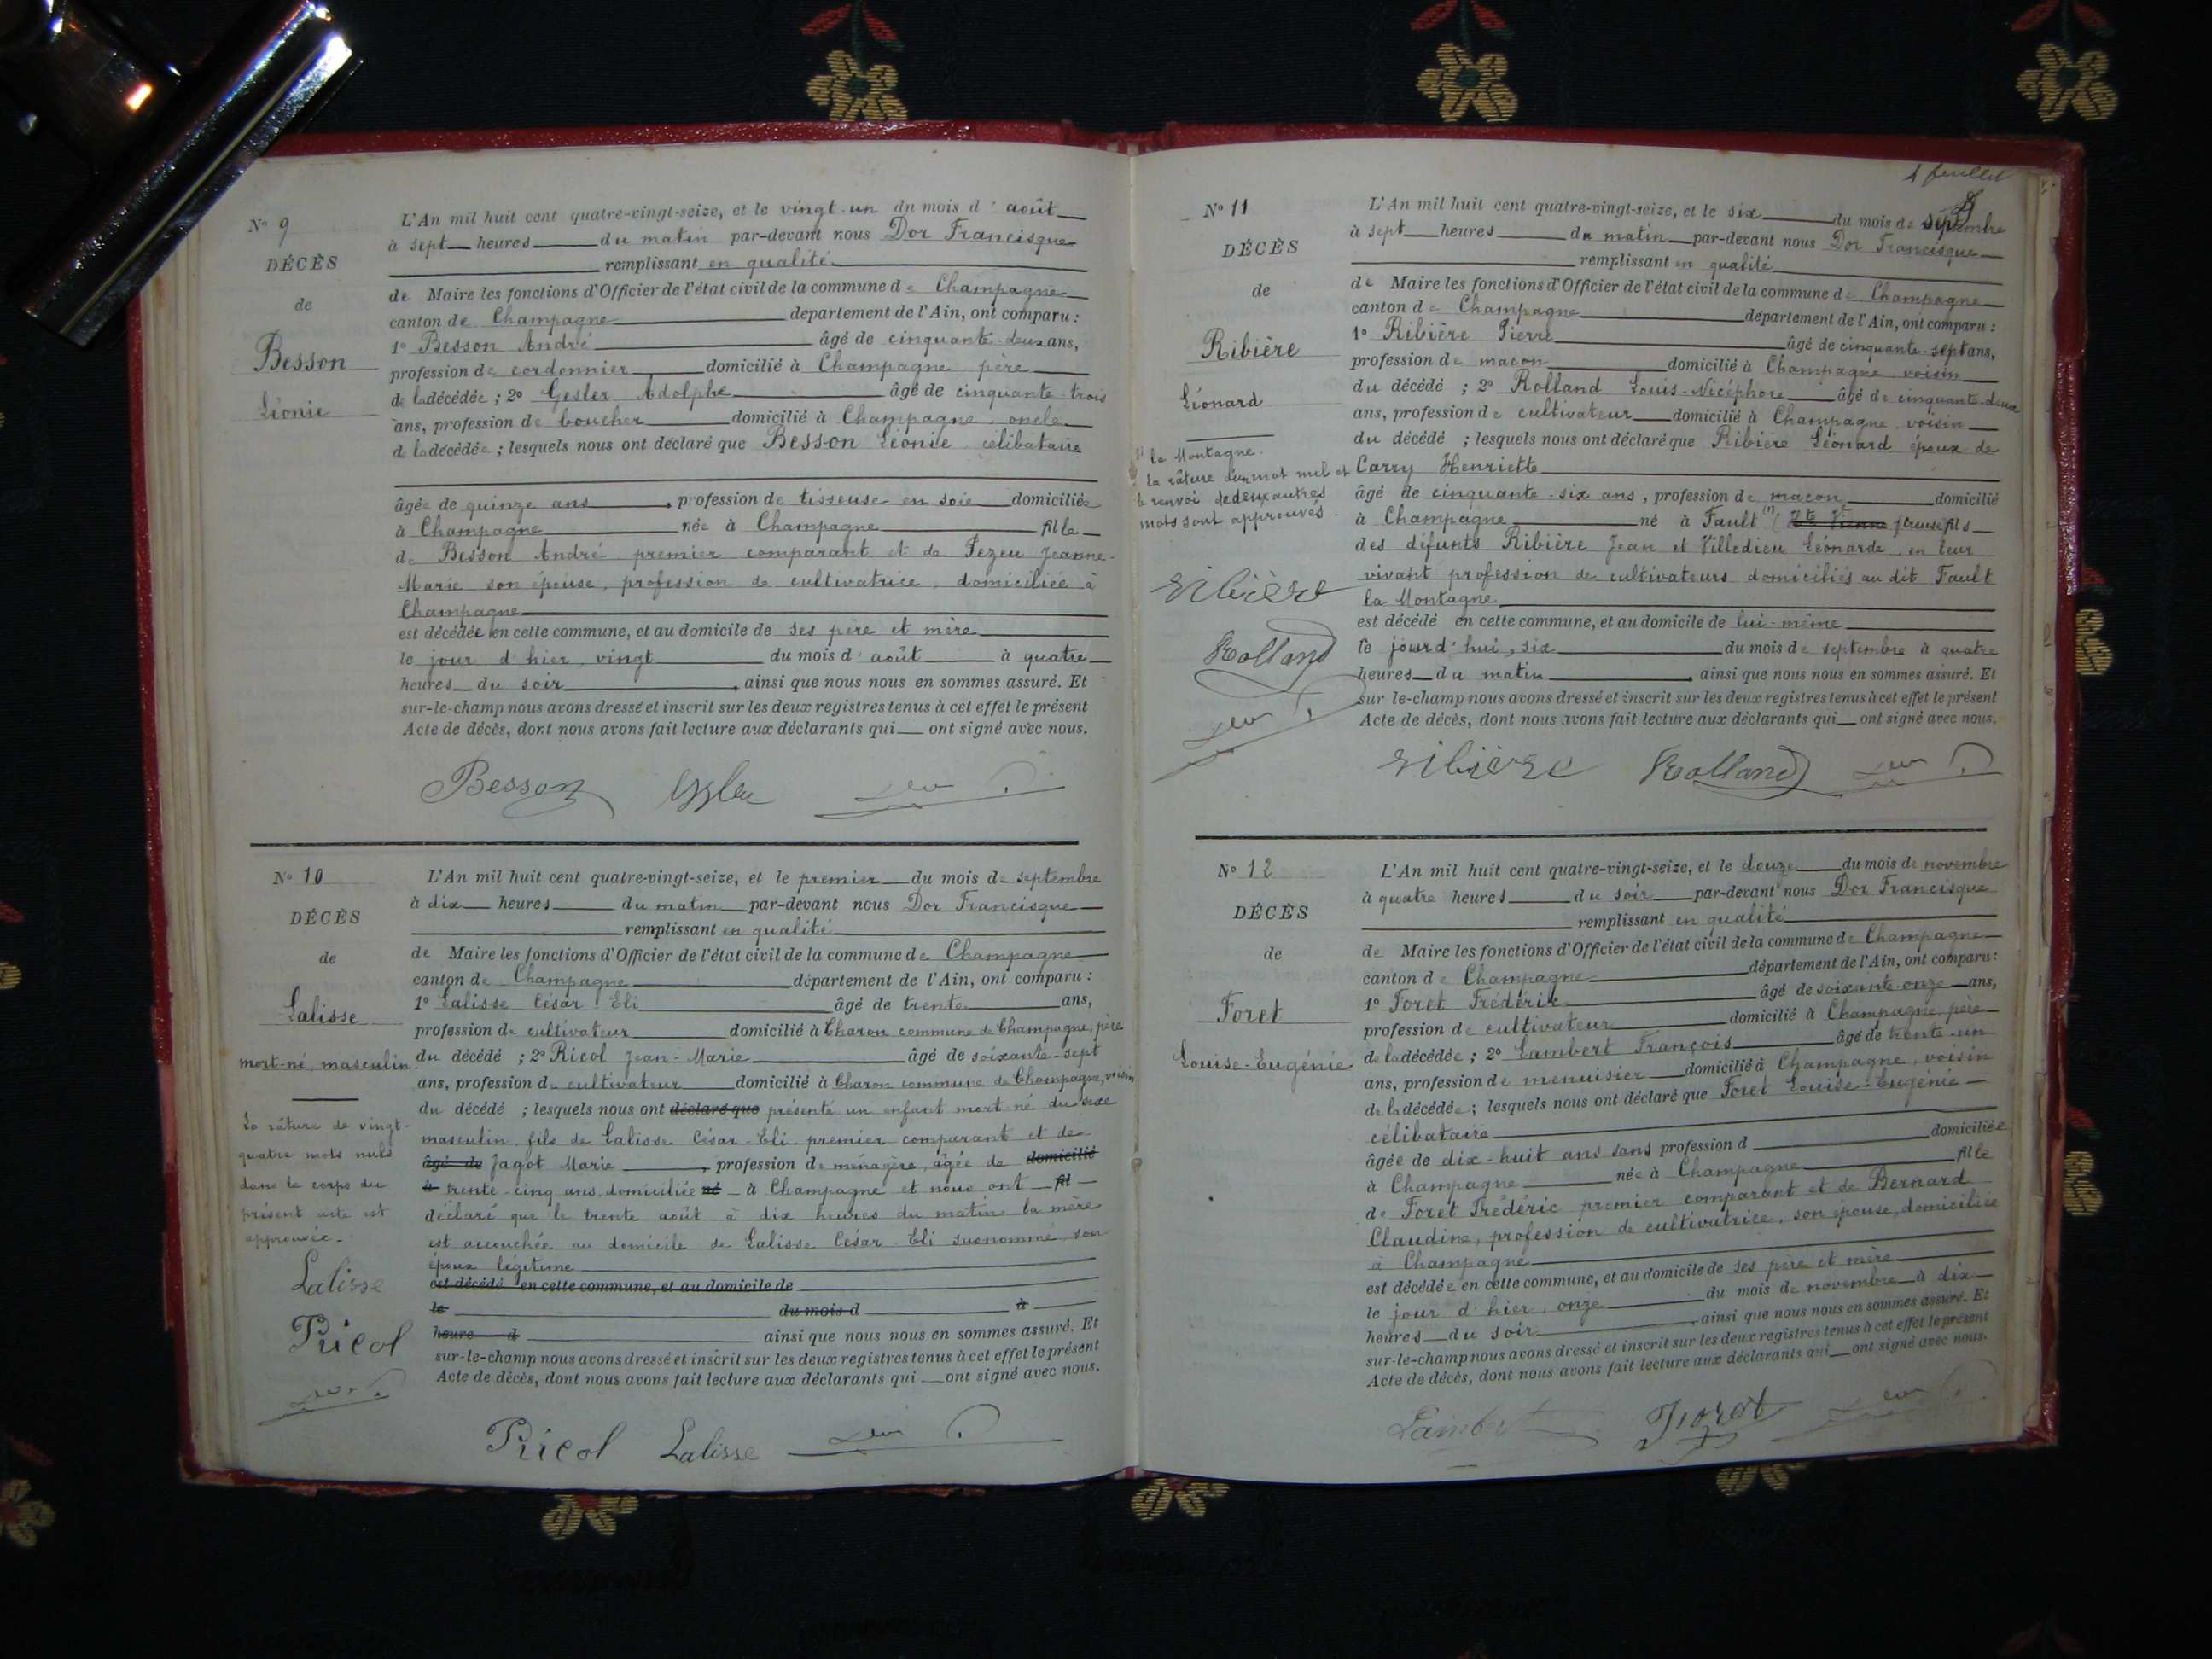 N° 9
DÉCÈS
de
Besson
Léonie
L'An mil huit cent quatre-vingt-seize, et le vingt-un du mois d'août
à sept heures du matin par-devant nous Dor Francisque
remplissant en qualité
de Maire les fonctions d'Officier de l'état civil de la commune de Champagne
canton de Champagne département de l'Ain, ont comparu :
1° Besson André âgé de cinquante-deux ans,
profession de cordonnier domicilié à Champagne père
de la décédée ; 2° Gesler Adolphe âgé de cinquante-trois
ans, profession de boucher domicilié à Champagne, oncle
de la décédée ; lesquels nous ont déclaré que Besson Léonie célibataire
âgée de quinze ans, profession de tisseuse en soie domiciliée
à Champagne née à Champagne fille
de Besson André premier comparant et de Pezeu Jeanne-
Marie son épouse, profession de cultivatrice, domiciliée à
Champagne
est décédée en cette commune, et au domicile de ses père et mère
le jour d'hier, vingt du mois d'août à quatre
heures du soir, ainsi que nous nous en sommes assuré. Et
sur-le-champ nous avons dressé et inscrit sur les deux registres tenus à cet effet le présent
Acte de décès, dont nous avons fait lecture aux déclarants qui ont signé avec nous.
Besson
N° 10
DÉCÈS
de
Lalisse
mort-né, masculin
La râture de vingt-
quatre mots nuls
dans le corps du
présent acte est
approuvée.
Lalisse
Pricol
L'An mil huit cent quatre-vingt-seize, et le premier du mois de septembre
à dix heures du matin par-devant nous Dor Francisque
remplissant en qualité
de Maire les fonctions d'Officier de l'état civil de la commune de Champagne
canton de Champagne département de l'Ain, ont comparu :
1° Lalisse César Eli âgé de trente ans,
profession de cultivateur domicilié à Charon commune de Champagne, père
du décédé ; 2° Ricol Jean-Marie âgé de soixante-sept
ans, profession de cultivateur domicilié à Charon commune de Champagne, voisin
du décédé ; lesquels nous ont déclaré que présenté un enfant mort né du sexe
masculin, fils de Lalisse César-Eli premier comparant et de
âgé de Jagot Marie, profession de ménagère, âgée de domicilié
à trente-cinq ans, domiciliée né à Champagne et nous ont fil
déclaré que le trente août à dix heures du matin la mère
est accouchée au domicile de Lalisse César-Eli susnommé, son
époux légitime
est décédé en cette commune, et au domicile de
le du mois d à
heure d ainsi que nous nous en sommes assuré. Et
sur-le-champ nous avons dressé et inscrit sur les deux registres tenus à cet effet le présent
Acte de décès, dont nous avons fait lecture aux déclarants qui ont signé avec nous.
Pricol Lalisse
feuillet
N° 11
DÉCÈS
de
Ribière
Léonard
(1) la Montagne.
La râture d'un mot nul et
le renvoi de deux autres
mots sont approuvés.
Ribière
Rolland
L'An mil huit cent quatre-vingt-seize, et le six du mois de septembre
à sept heures du matin par-devant nous Dor Francisque
remplissant en qualité
de Maire les fonctions d'Officier de l'état civil de la commune de Champagne
canton de Champagne département de l'Ain, ont comparu :
1° Ribière Pierre âgé de cinquante-sept ans,
profession de maçon domicilié à Champagne voisin
du décédé ; 2° Rolland Louis-Nicéphore âgé de cinquante-deux
ans, profession de cultivateur domicilié à Champagne voisin
du décédé ; lesquels nous ont déclaré que Ribière Léonard époux de
Carry Henriette
âgé de cinquante-six ans, profession de maçon domicilié
à Champagne né à Fault (1) (Hte Vienne Creuse fils
des défunts Ribière Jean et Villedieu Léonarde en leur
vivant profession de cultivateurs domiciliés au dit Fault
la Montagne
est décédé en cette commune, et au domicile de lui-même
le jourd'hui, six du mois de septembre à quatre
heures du matin, ainsi que nous nous en sommes assuré. Et
sur-le-champ nous avons dressé et inscrit sur les deux registres tenus à cet effet le présent
Acte de décès, dont nous avons fait lecture aux déclarants qui ont signé avec nous.
Ribière Rolland
N° 12
DÉCÈS
de
Foret
Louise-Eugénie
L'An mil huit cent quatre-vingt-seize, et le douze du mois de novembre
à quatre heures du soir par-devant nous Dor Francisque
remplissant en qualité
de Maire les fonctions d'Officier de l'état civil de la commune de Champagne
canton de Champagne département de l'Ain, ont comparu :
1° Foret Frédéric âgé de soixante-onze ans,
profession de cultivateur domicilié à Champagne, père
de la décédée ; 2° Lambert François âgé de trente-un
ans, profession de menuisier domicilié à Champagne, voisin
de la décédée ; lesquels nous ont déclaré que Foret Louise-Eugénie
célibataire
âgée de dix-huit ans sans profession d domiciliée
à Champagne née à Champagne fille
de Foret Frédéric premier comparant et de Bernard
Claudine, profession de cultivatrice, son épouse, domiciliée
à Champagne
est décédée en cette commune, et au domicile de ses père et mère
le jour d'hier, onze du mois de novembre à dix
heures du soir, ainsi que nous nous en sommes assuré. Et
sur-le-champ nous avons dressé et inscrit sur les deux registres tenus à cet effet le présent
Acte de décès, dont nous avons fait lecture aux déclarants qui ont signé avec nous.
Lambert Foret